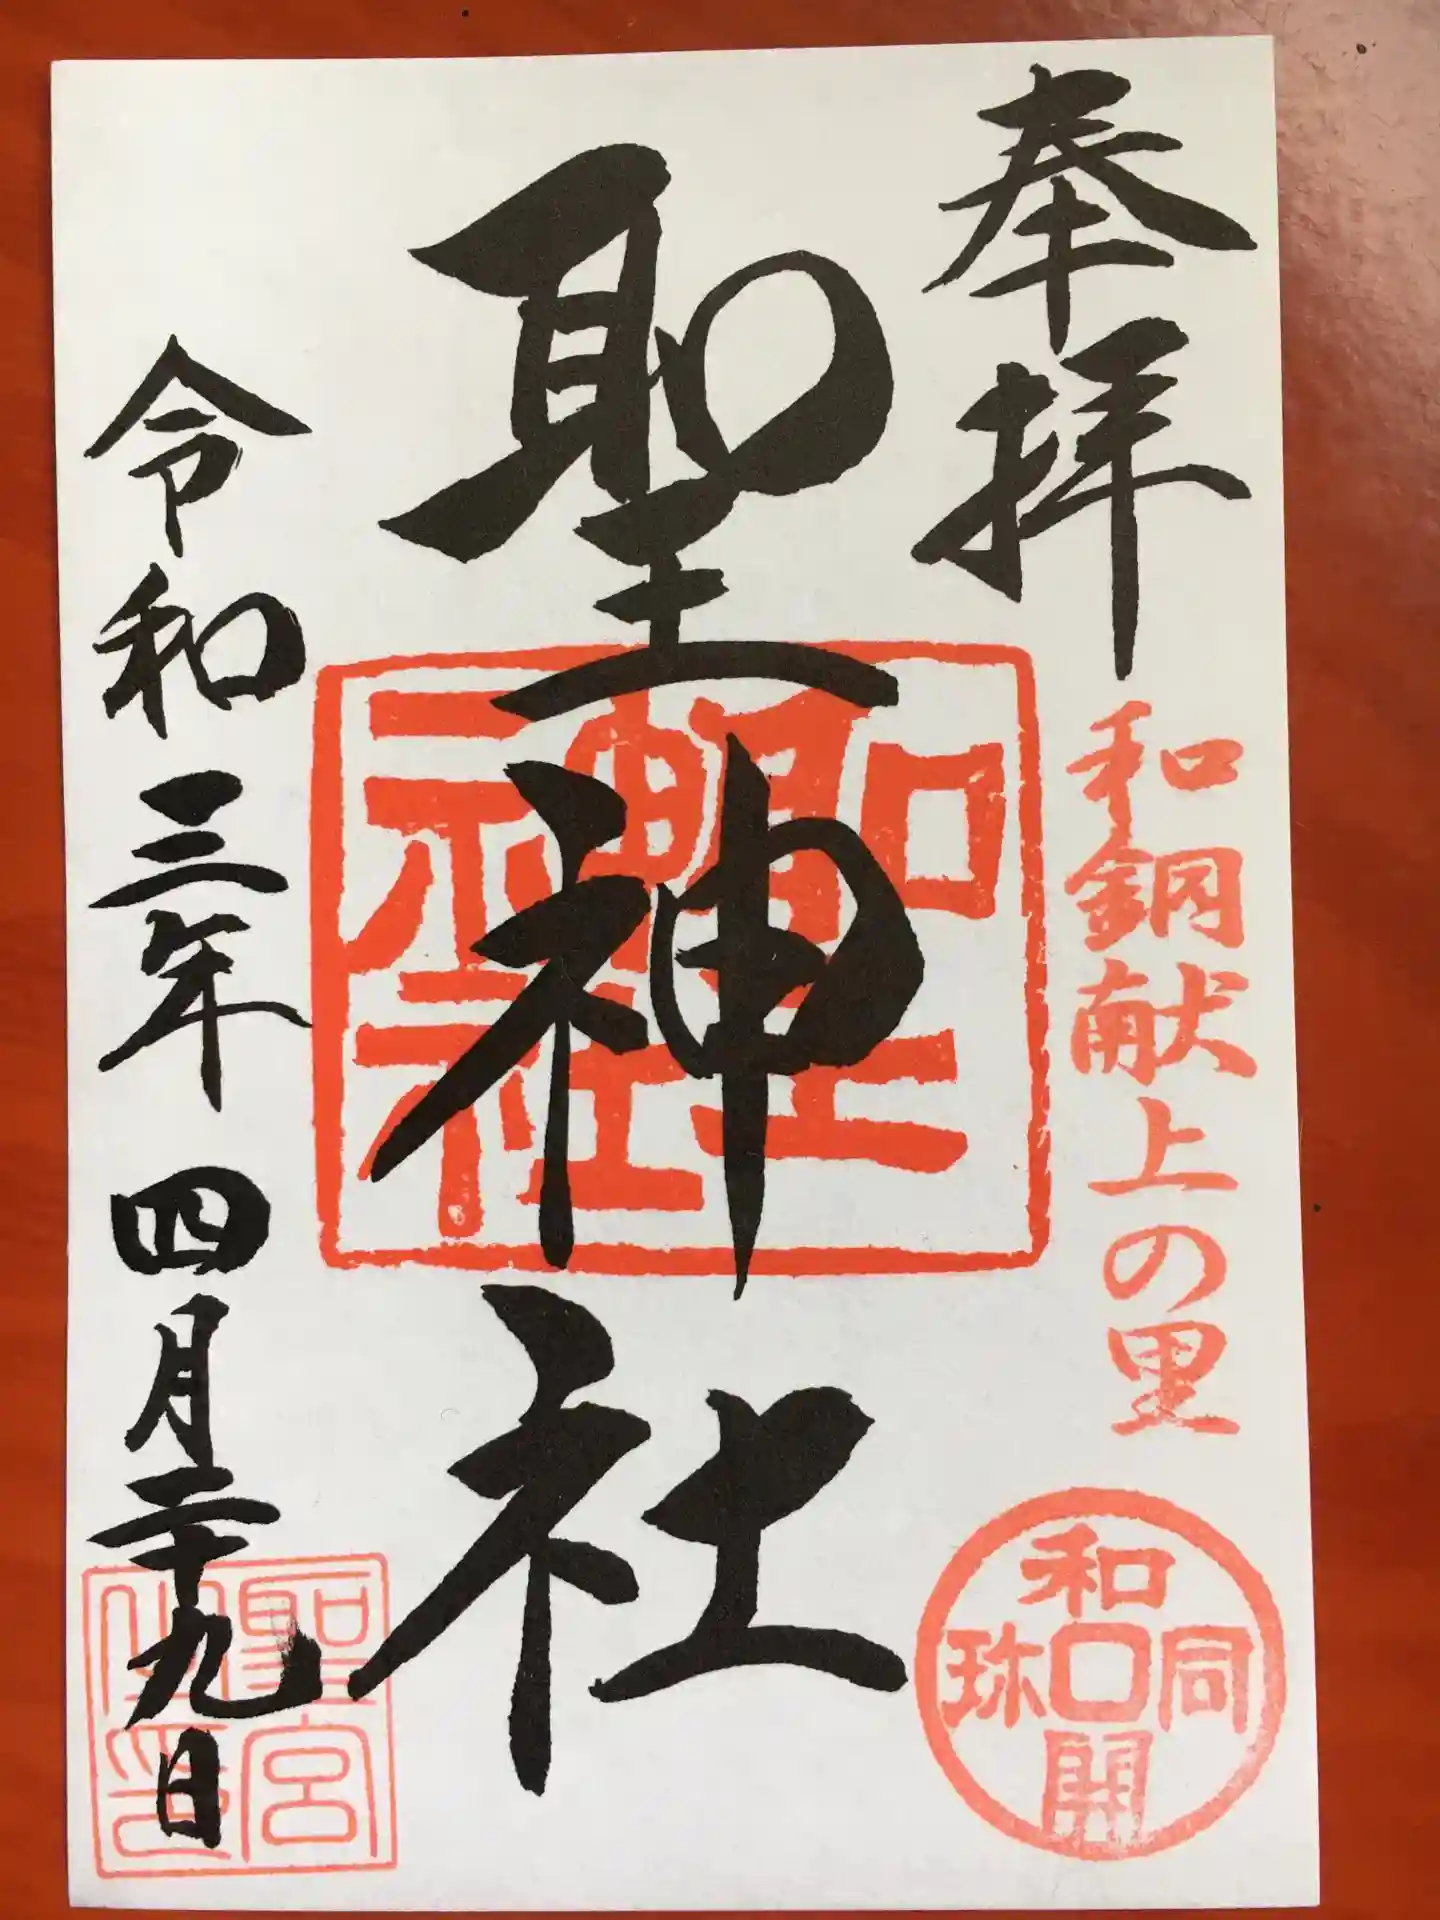 奉拝
和銅献上の里
和同開珎
聖神社
聖神社
令和三年四月二十九日
聖宮